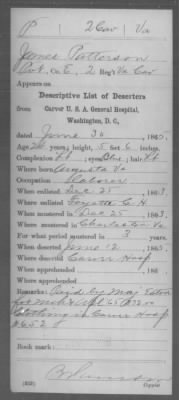 P | 2 Cav | Va
James Patterson
Pvt, Co. E, 2 Reg't Va Cav
Appears on
Descriptive List of Deserters
from
Carver U. S. A. General Hospital,
Washington, D. C.,
dated June 30, 1865.
Age 20 years; height, 5 feet 6 inches.
Complexion Lt; eyes Blue; hair Lt
Where born Augusta Va
Occupation Laborer
When enlisted Dec 25, 1863.
Where enlisted Fayette C. H.
When mustered in Dec 25, 1863.
Where mustered in Charleston Va
For what period mustered in 3 years.
When deserted June 12, 1865.
Where deserted Carver Hosp
When apprehended , 186 .
Where apprehended
Remarks: Paid by Maj Eaton
Clothing in Carver Hosp
Book mark: